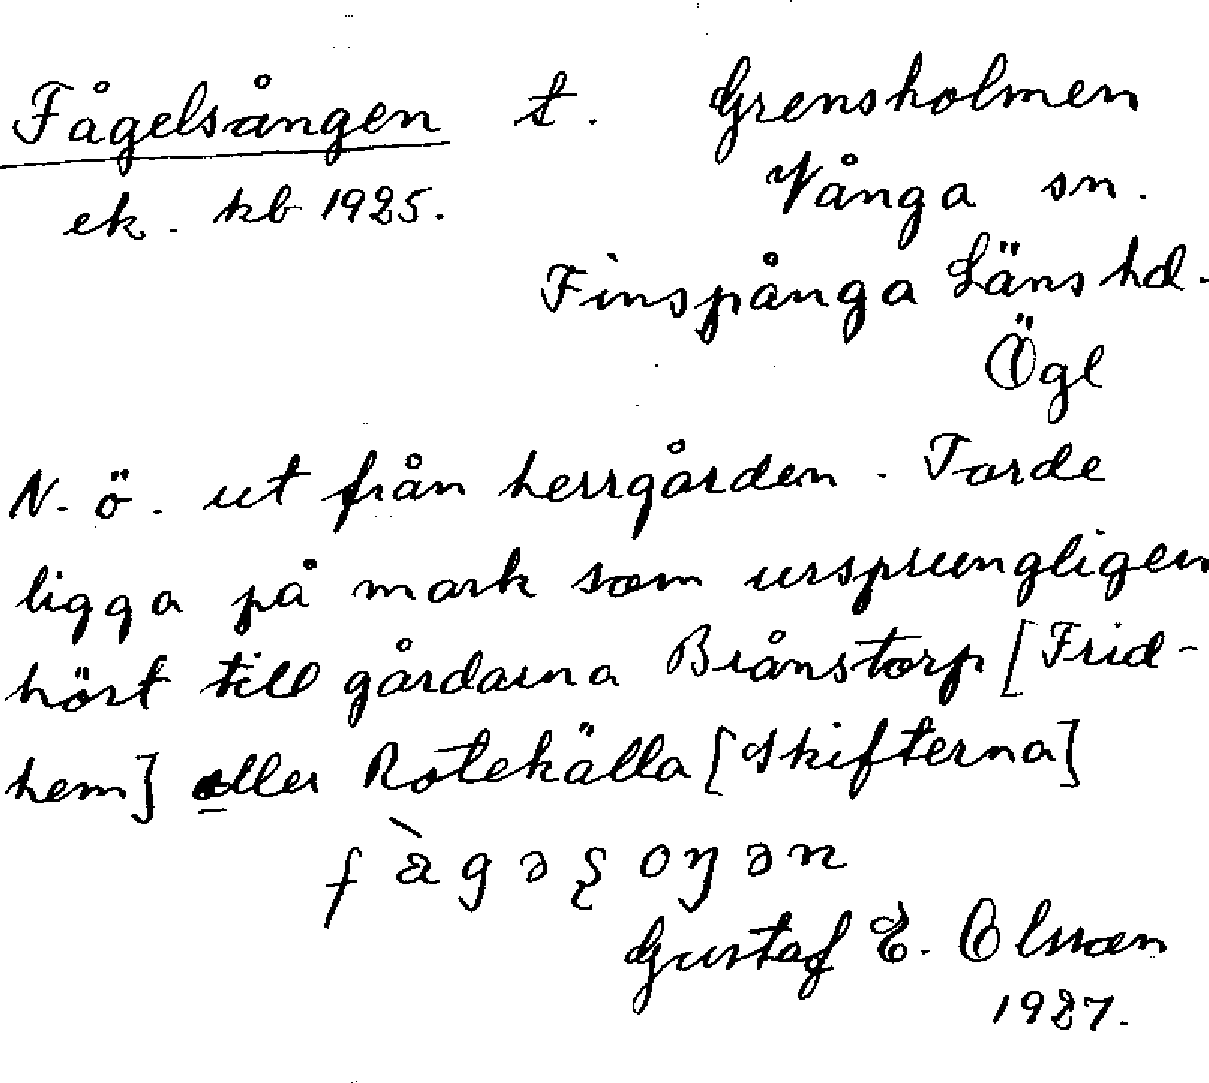 Fågelsången t. Grensholmen
ek. kb 1925. Vånga sn.
Finspånga Läns hd.
Ögl
N. ö. ut från herrgården. Torde
ligga på mark som ursprungligen
hört till gårdarna Brånstorp [Frid-
hem] eller Rotekälla [Skifterna]
fàgəʂoŋən
Gustaf E. Olsson
1927.